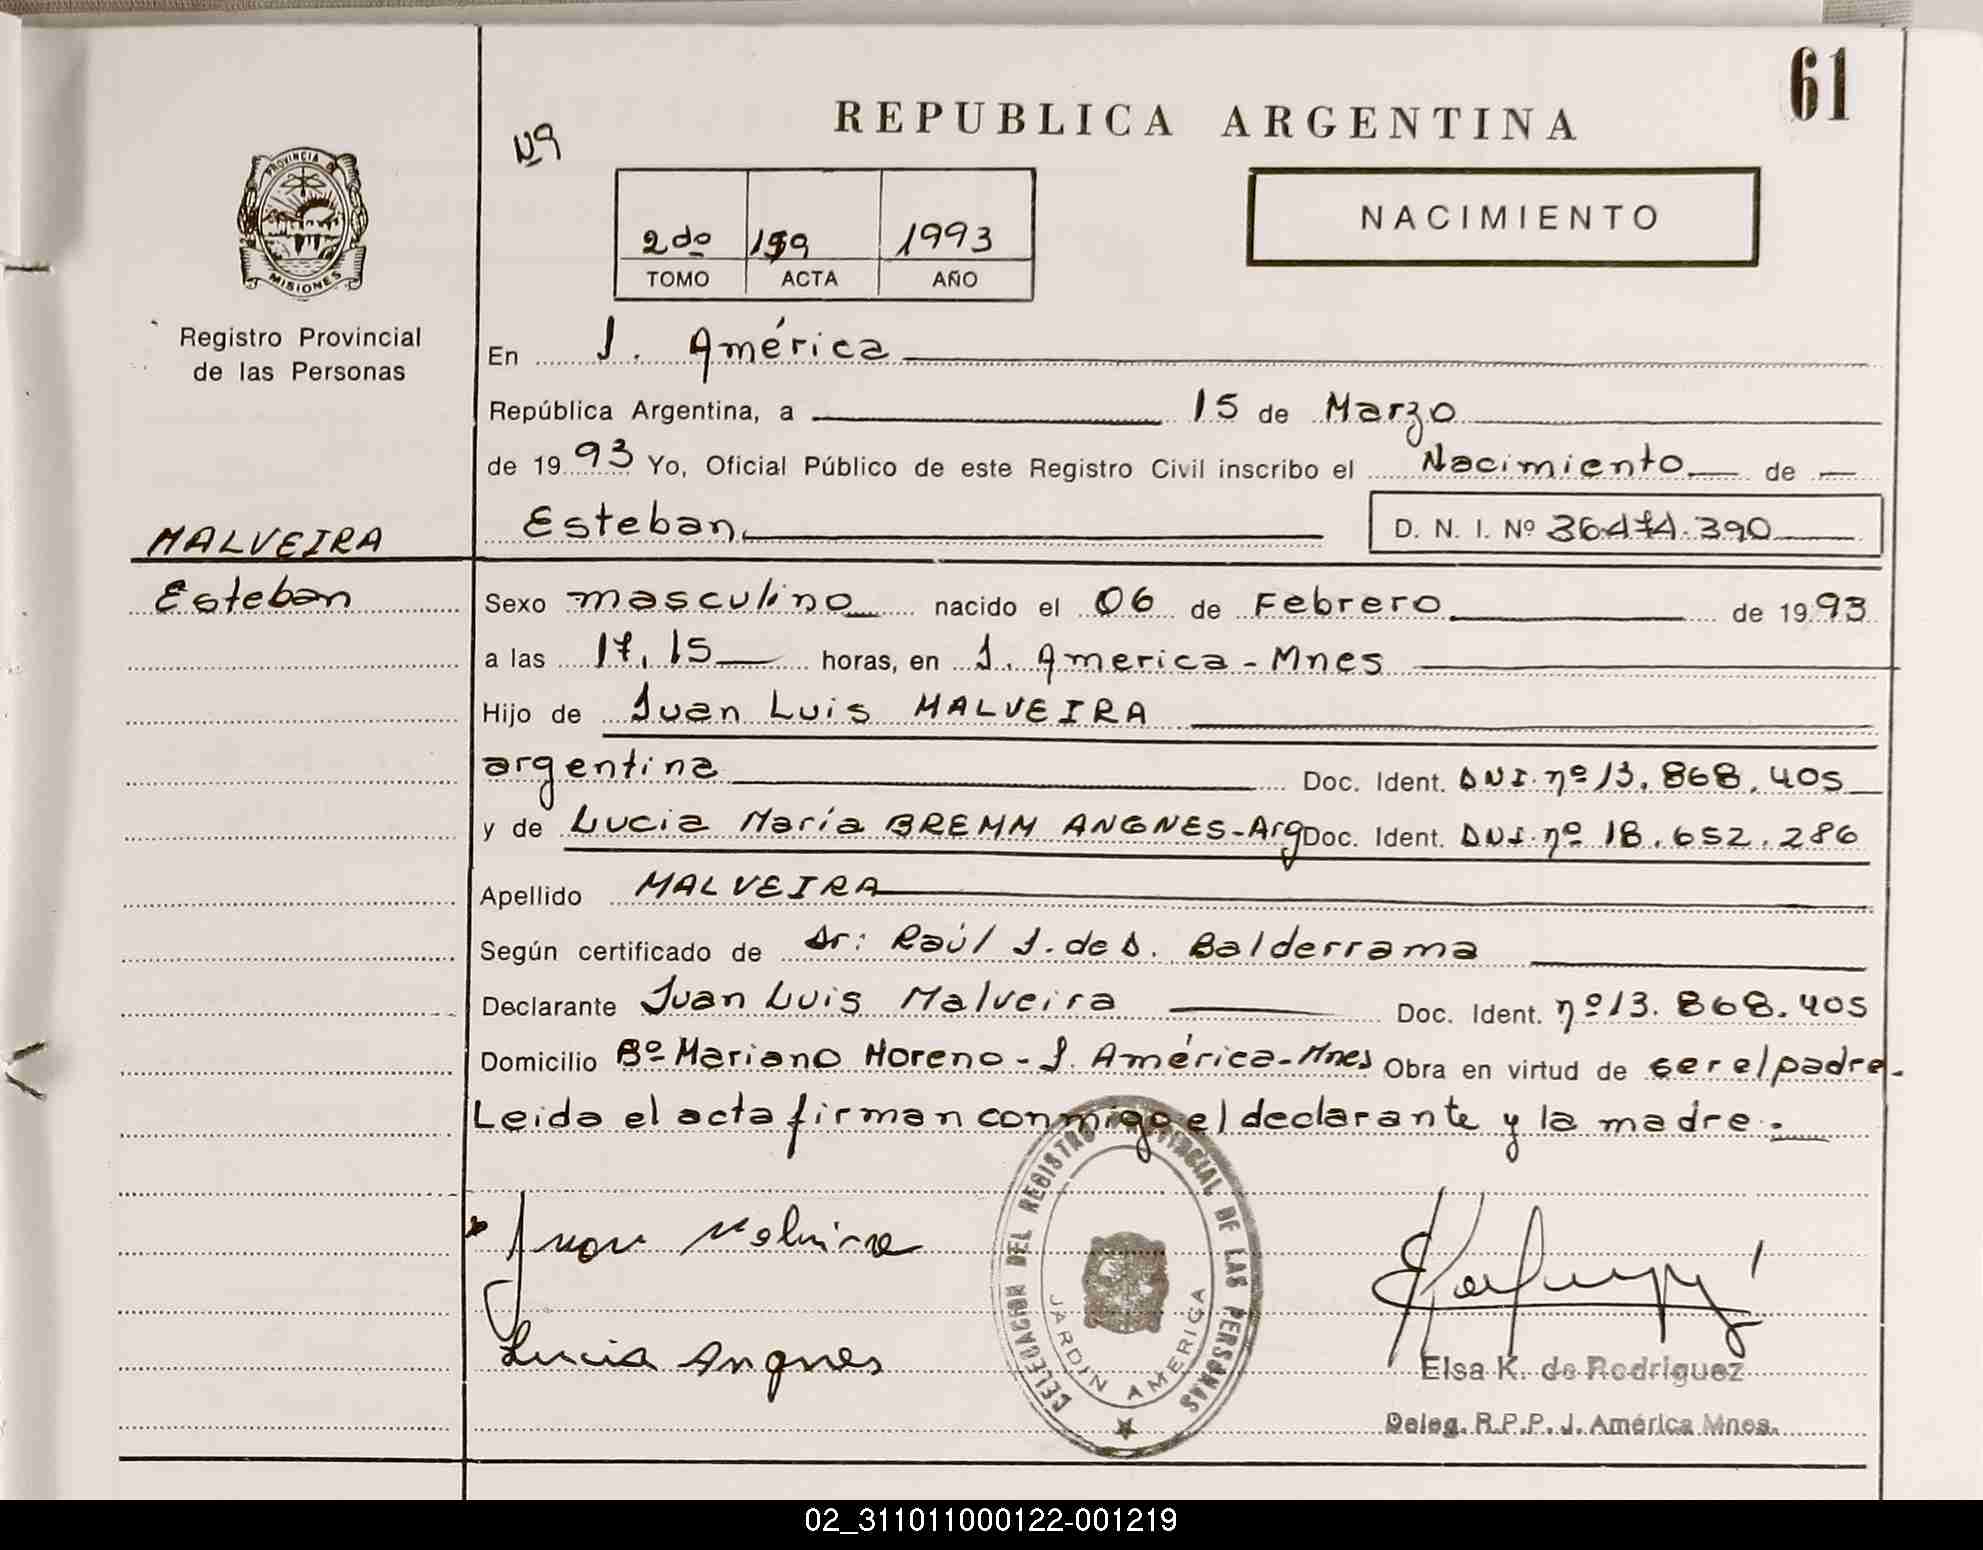 61
REPUBLICA ARGENTINA
Nº
NACIMIENTO
2do 159 1993
TOMO ACTA AÑO
PROVINCIA DE
MISIONES
Registro Provincial
de las Personas
En J. América
República Argentina, a 15 de Marzo
de 1993 Yo, Oficial Público de este Registro Civil inscribo el Nacimiento de
MALVEIRA
Esteban
Esteban D. N. I. Nº 36.474.390
Sexo masculino nacido el 06 de Febrero de 1993
a las 17,15 horas, en J. America - Mnes
Hijo de Juan Luis MALVEIRA
argentina Doc. Ident. DNI. nº 13.868.405
y de Lucia María BREMM ANGNES - Arg Doc. Ident. DNI. nº 18.652.286
Apellido MALVEIRA
Según certificado de Dr: Raúl J. de D. Balderrama
Declarante Juan Luis Malveira Doc. Ident. nº 13.868.405
Domicilio Bº Mariano Moreno - J. América - Mnes Obra en virtud de ser el padre.
Leida el acta firman conmigo el declarante y la madre.
Juan Malveira
Lucia Angnes
DELEGACION DEL REGISTRO PROVINCIAL DE LAS PERSONAS
JARDIN AMERICA
Elsa K. de Rodriguez
Deleg. R.P.P. J. América Mnes.
02_311011000122-001219